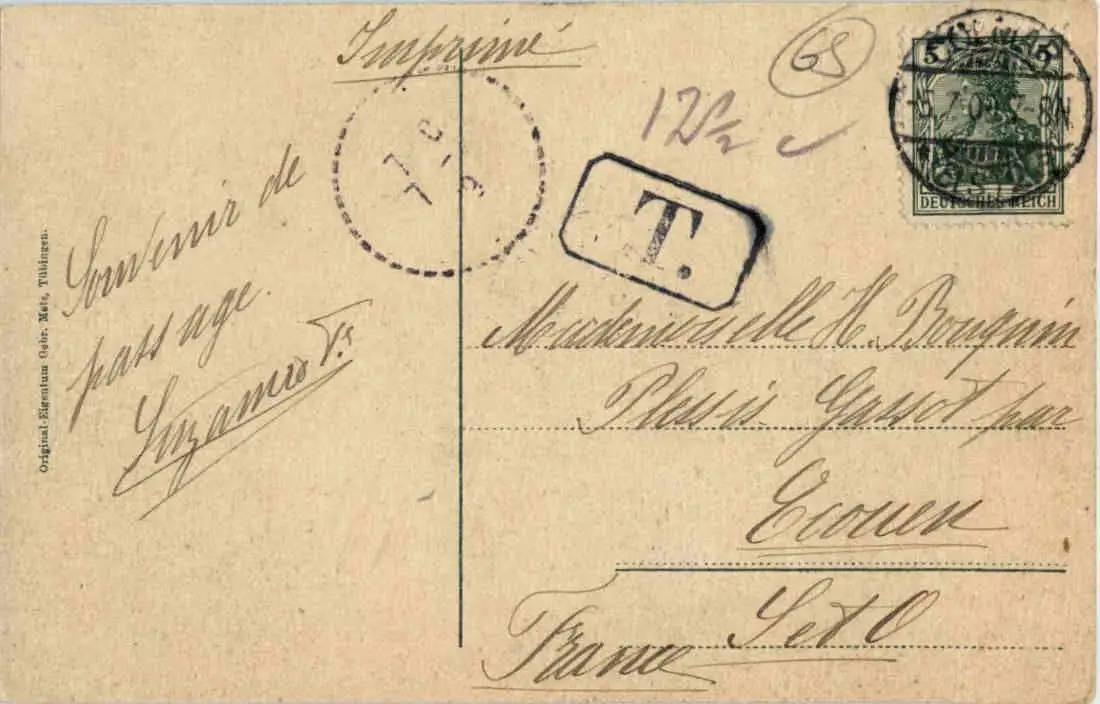 Imprimé
GS
12 1/2
5 5
COLMAR
DEUTSCHES REICH
T.
Souvenir de
passage.
Suzanne
Mademoiselle H. Bouquin
Plessis-Gassot par
Ecouen
S et O
France
Original-Eigentum Gebr. Metz, Tübingen.